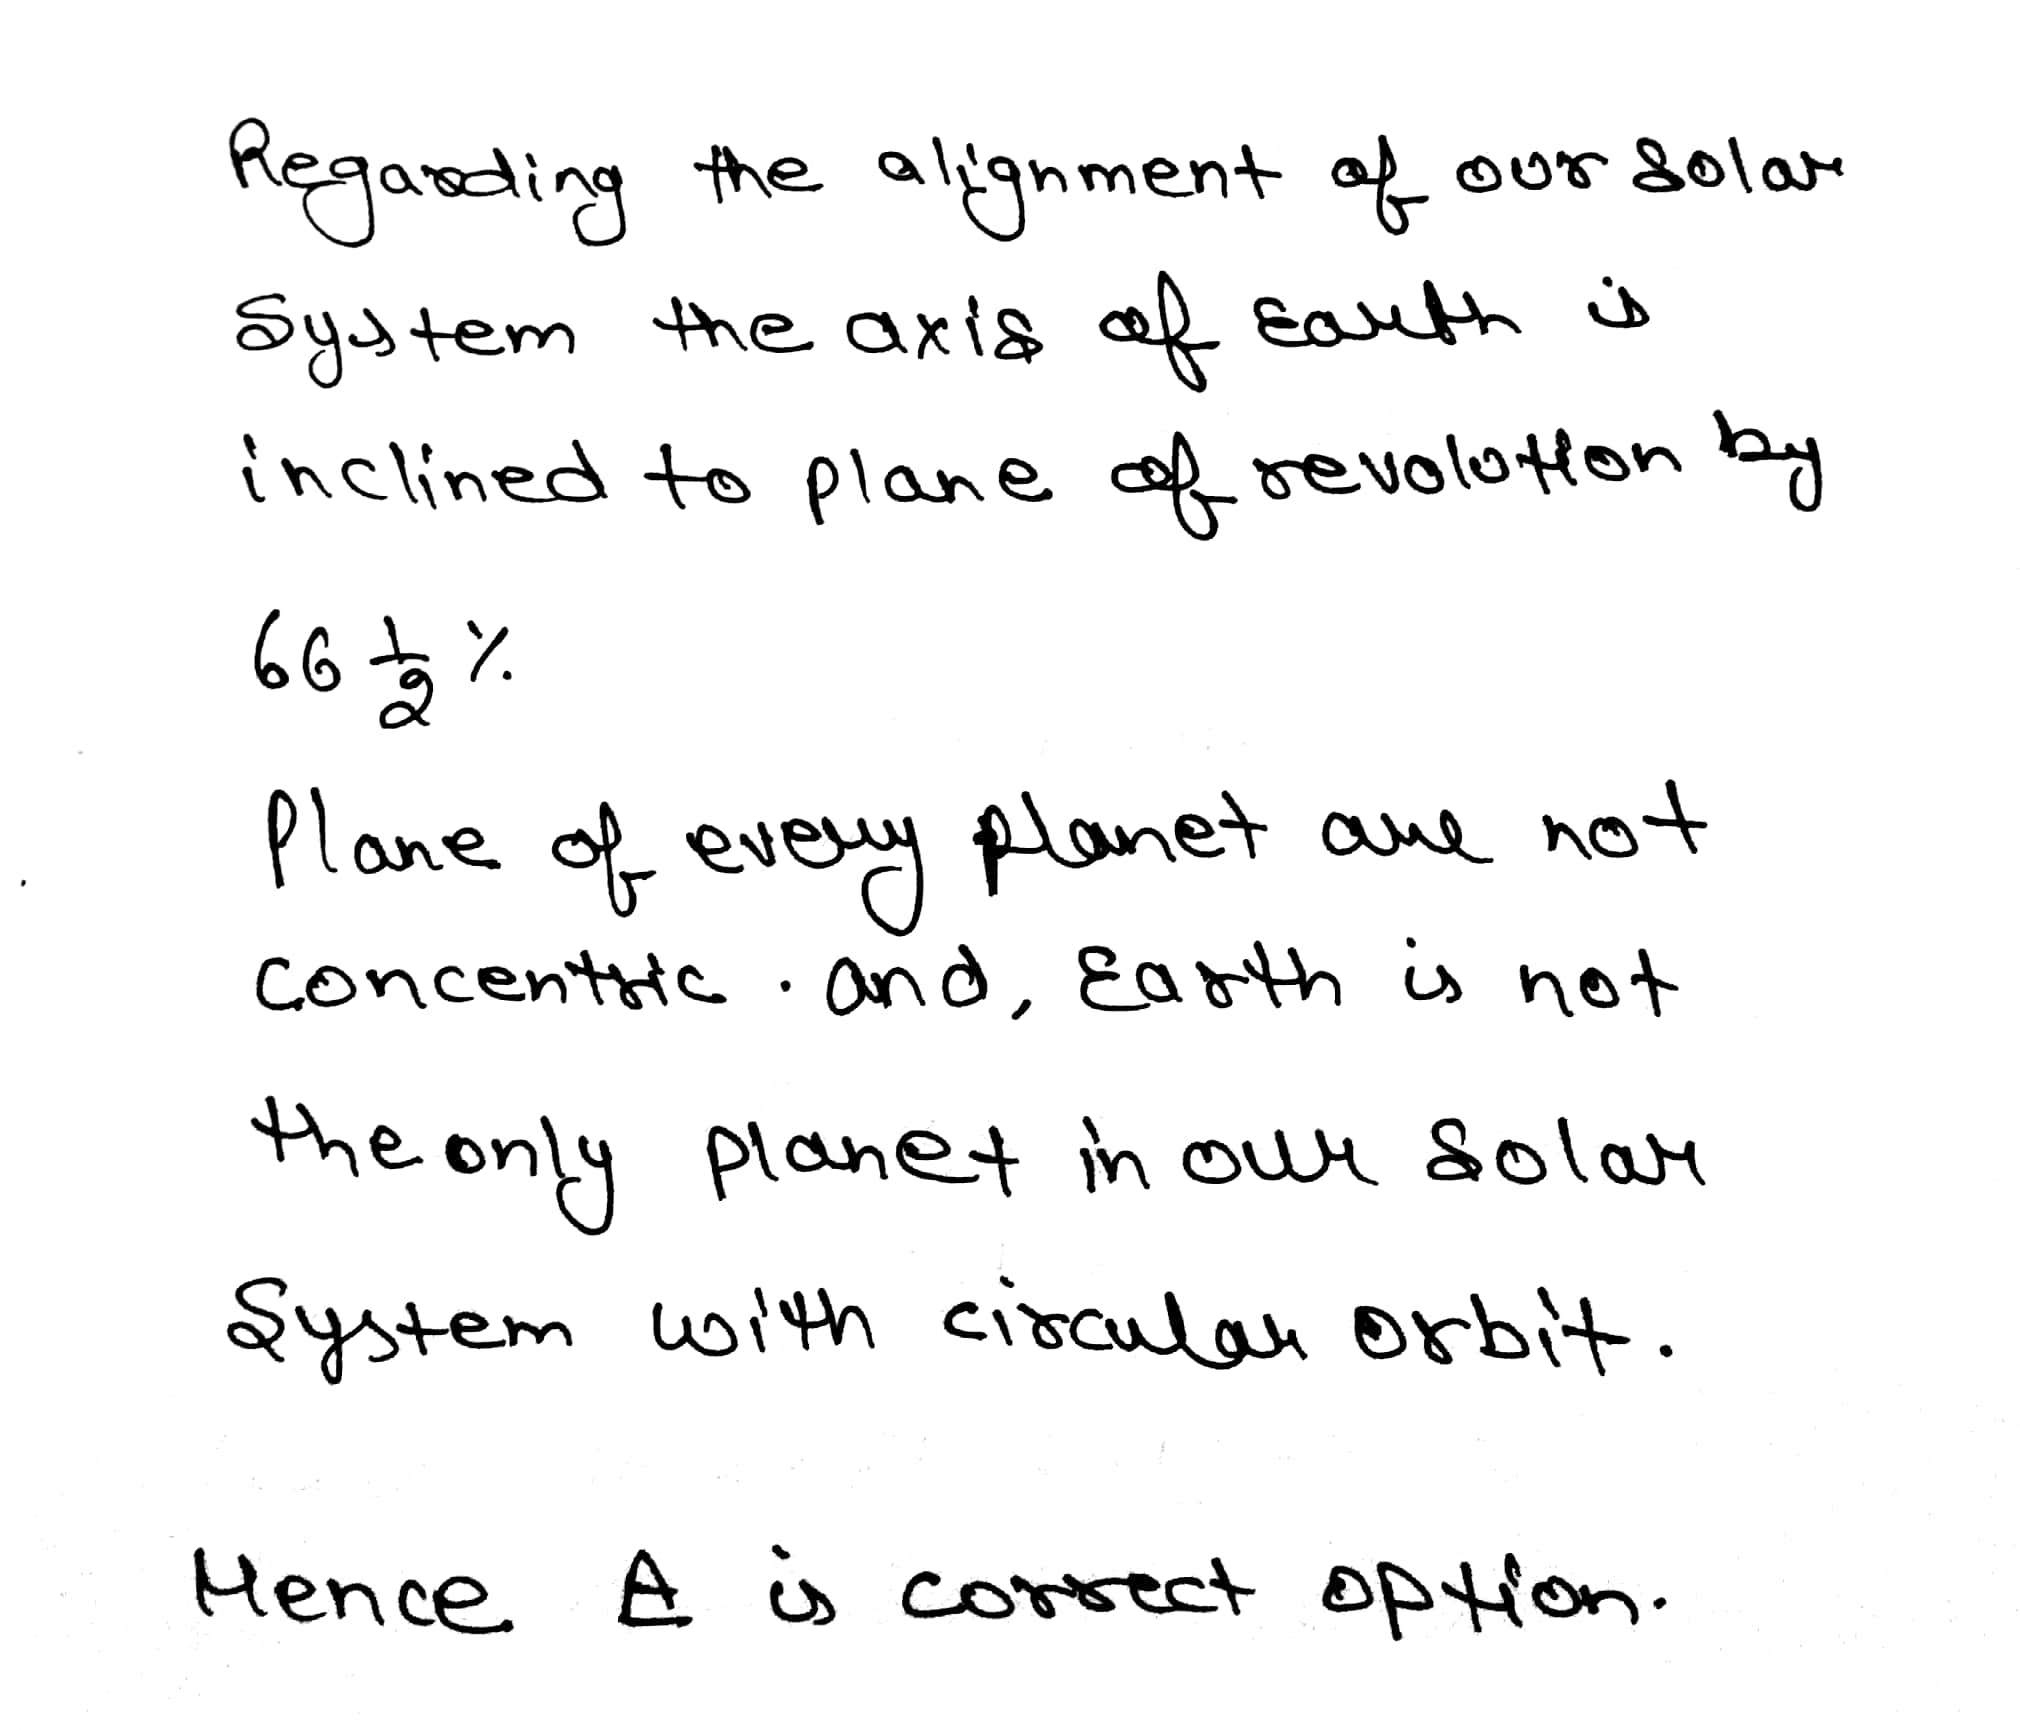 Regarding the alignment of our solar
system the axis of Earth is
inclined to plane of revolution by
66 1/2 %
Plane of every planet are not
concentric . and, Earth is not
the only planet in our solar
system with circular orbit.
Hence A is correct option.